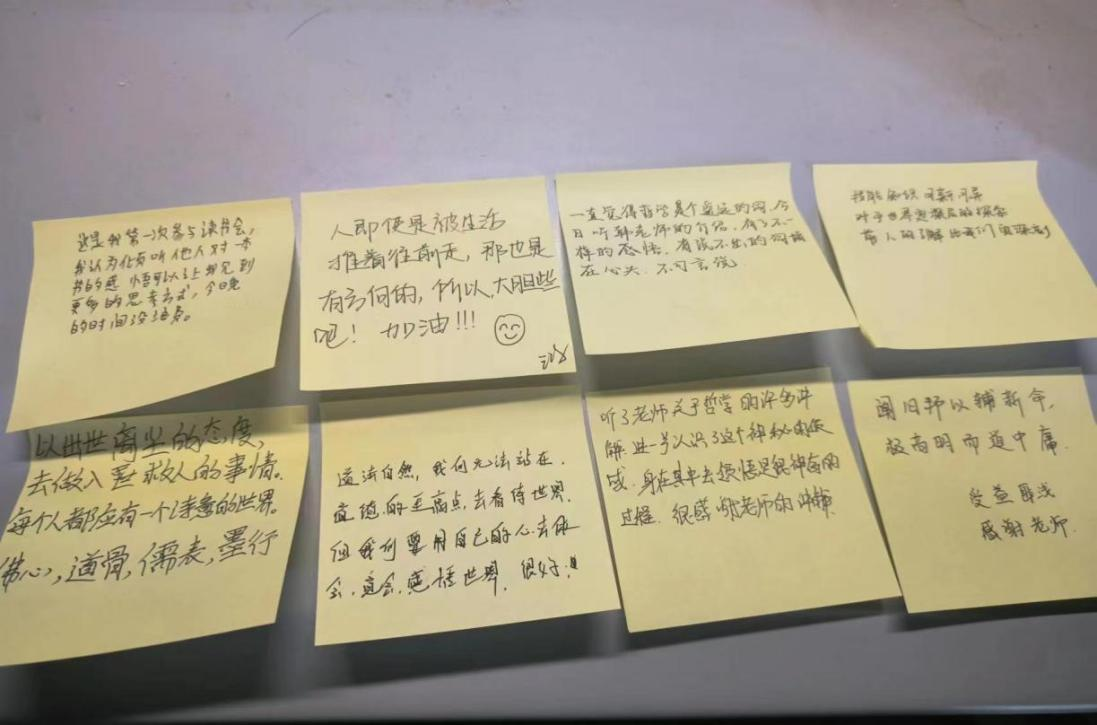 这是我第一次参与读书会,
我认为化育听他人对一本
书的感悟可以让我见到
更多的思考方式,今日晚
的时间没浪费。
人即便是被生活
推着往前走,那也是
有方向的,所以,大胆些
吧!加油!!!
一直觉得哲学是个奥远的词,今
日听韩老师的介绍,有了不一
样的感悟,有说不出的词语
在心头,不可言说
技能知识
对于世界
前人的了解
以出世离尘的态度,
去做入世救人的事情。
每个人都应有一个诗意的世界。
佛心,道骨,儒表,墨行
道法自然,我们无法站在,
道德的至高点,去看待世界,
但我们要用自己的心去体
会,意会,感悟世界,很好!
听了老师关于哲学的许多讲
解,进一步认识了这个神秘的领
域,身在其中去领悟是很神奇的
过程,很感谢老师的讲解
阐旧邦以辅新命,
极高明而道中庸.
受益匪浅
感谢老师.